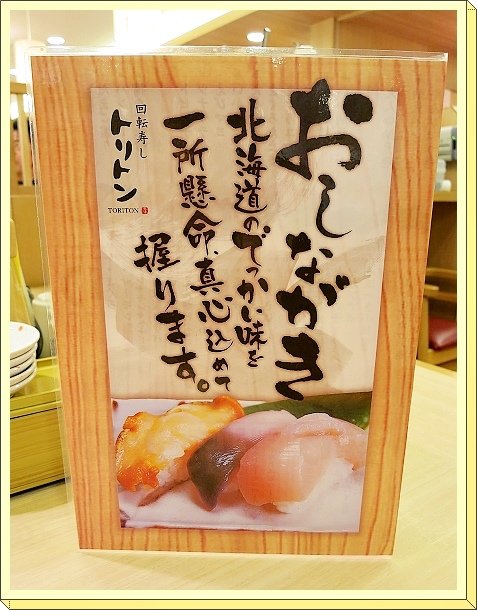 おしながき
北海道のでっかい味を
一所懸命、真心込めて
握ります。
回転寿し
トリトン
TORITON